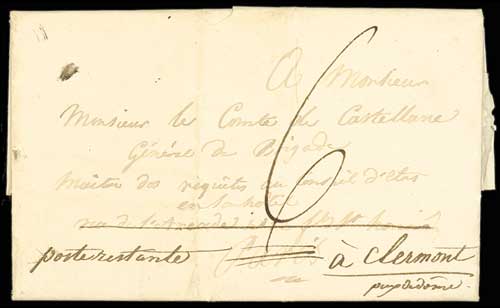 A Monsieur
Monsieur le Comte de Castellane
Général de Brigade
Maître des requêtes au conseil d'etat
en son hotel
rue de
Paris
6
poste restante
à Clermont
puy de dôme